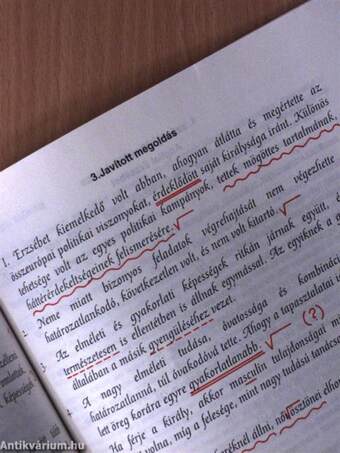 3. Javított megoldás
1. Erzsébet kiemelkedő volt abban, ahogyan átlátta és megértette az
összeurópai politikai viszonyokat, érdeklődött saját királysága iránt. Különös
tehetsége volt az egyes politikai kampányok, tettek mögöttes tartalmának,
háttérérdekeltségeinek felismerésére.
2. Neme miatt bizonyos feladatok végrehajtását nem végezhette
határozatlankodó, következetlen volt, és nem volt kitartó.
3. Az elméleti és gyakorlati képességek ritkán járnak együtt, és
természetesen is ellentétben is állnak egymással. Az egyiknek a
általában a másik gyengüléséhez vezet.
4. A nagy elméleti tudása, óvatossága és
határozatlanná, túl óvakodóvá tette. Ahogy a tapasztalatai
lett öreg korára egyre gyakorlatlanabb. (?)
Ha férje a király, akkor masculin tulajdonságai
volna, míg a felesége, mint nagy tudású
állni, nőösztönei
Antikvárium.hu